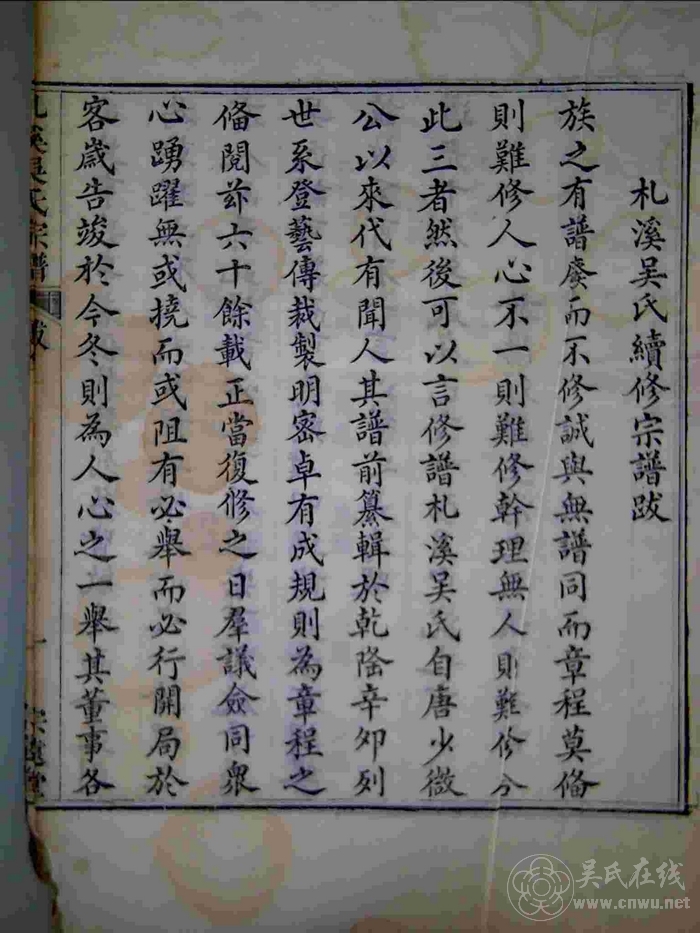 札溪吳氏續修宗譜跋
族之有譜廢而不修誠與無譜同而章程莫備
則難修人心不一則難修幹理無人則難修合
此三者然後可以言修譜札溪吳氏自唐少微
公以來代有聞人其譜前纂輯於乾隆辛卯列
世系登藝傳裁製明密卓有成規則為章程之
備閱茲六十餘載正當復修之日羣議僉同眾
心踴躍無或撓而或阻有必舉而必行開局於
客歲告竣於今冬則為人心之一舉其董事各
溪吳氏宗譜
跋
一
吴氏在线
www.cnwu.net